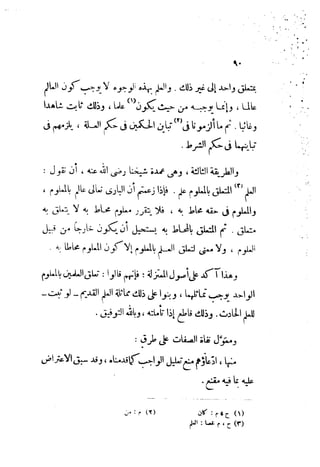 ٩٠
بمتعلق واحد إلى غير ذلك. والعلم بهذه الوجوه لا يوجب كون العالم
عالما، وإنما يوجبه من حيث يكون(١) علما، وذلك ثابت شاهدا
وغائبا. ثم ما ألزمونا فى(٢) تباين الحكمين فى حكم العلة، يلزمهم فى
تباينهما فى حكم الشرط.
والطريقة الثالثة، وهى عمدة شيخنا رضى الله عنه، أن نقول:
العلم(٣) المتعلق بالمعلوم علم. فإذا زعمتم أن البارى تعالى عالم بالمعلوم،
والمعلوم فى حقه محاط به، فلا يتقرر معلوم محاط به لا يتعلق به
متعلق. ثم المتعلق بالمحاط به يستحيل أن يكون خارجا من قبيل
العلوم، ولا معنى لتعلق العلم بالمعلوم إلا كون المعلوم محاطا به.
وهذا آكد على أصول المعتزلة: فإنهم قالوا: تعلق العلمين بالمعلوم
الواحد يوجب تماثلهما، وبنوا على ذلك مماثلة العلم القديم – لو ثبت –
للعلم الحادث. وذلك قاطع إذا تأملته، وبالله التوفيق.
ومعوّل نفاة الصفات على طرق:
منها، ادعاؤهم منع تعليل الواجب كما قدمناه، وقد سبق الاعتراض
عليه بما فيه مقنع.
(١) ح ٥ م : كان (٢) م : من
(٣) ح ، م نقصا : العلم